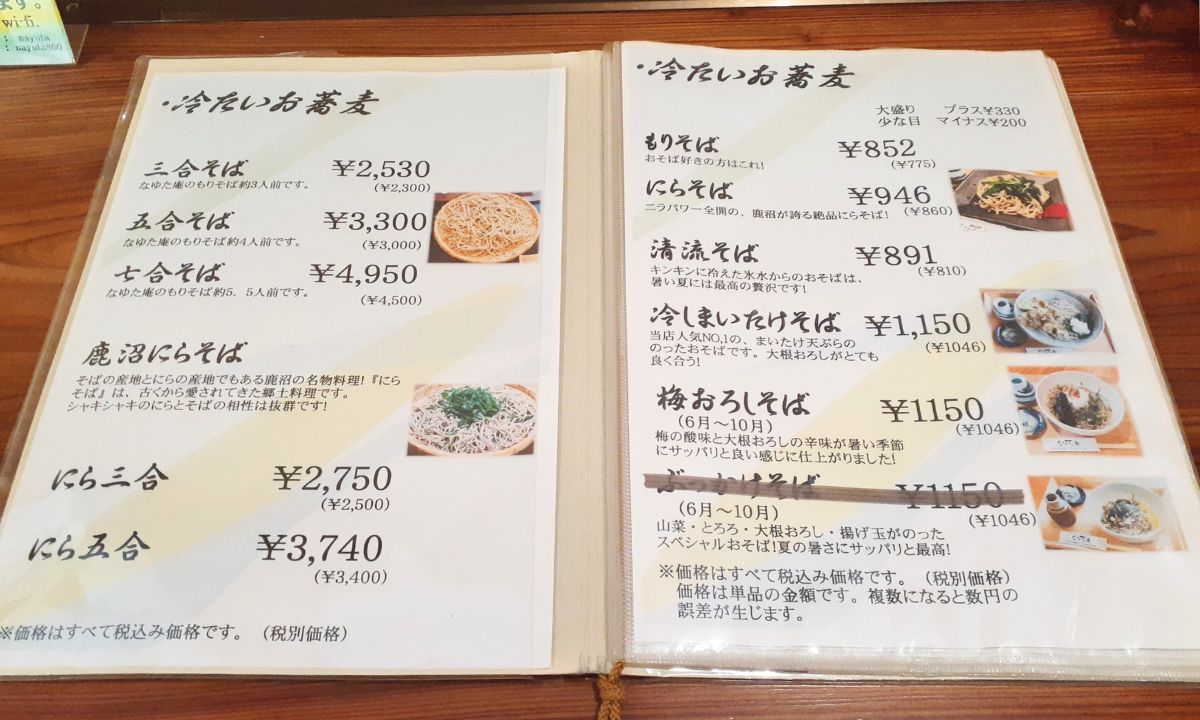 ます。
wi-fi.
: nayuta
: nayuta860
・冷たいお蕎麦
三合そば ¥2,530
なゆた庵のもりそば約3人前です。 (¥2,300)
五合そば ¥3,300
なゆた庵のもりそば約4人前です。 (¥3,000)
七合そば ¥4,950
なゆた庵のもりそば約5．5人前です。 (¥4,500)
鹿沼にらそば
そばの産地とにらの産地でもある鹿沼の名物料理!『にら
そば』は、古くから愛されてきた郷土料理です。
シャキシャキのにらとそばの相性は抜群です!
にら三合 ¥2,750
(¥2,500)
にら五合 ¥3,740
(¥3,400)
※価格はすべて税込み価格です。（税別価格）
・冷たいお蕎麦
大盛り プラス¥330
少な目 マイナス¥200
もりそば ¥852
おそば好きの方はこれ! (¥775)
にらそば ¥946
ニラパワー全開の、鹿沼が誇る絶品にらそば! (¥860)
清流そば ¥891
キンキンに冷えた氷水からのおそばは、 (¥810)
暑い夏には最高の贅沢です!
冷しまいたけそば ¥1,150
当店人気NO,1の、まいたけ天ぷらの (¥1046)
のったおそばです。大根おろしがとても
良く合う!
梅おろしそば ¥1150
(6月～10月) (¥1046)
梅の酸味と大根おろしの辛味が暑い季節
にサッパリと良い感じに仕上がりました!
ぶっかけそば ¥1150
(6月～10月) (¥1046)
山菜・とろろ・大根おろし・揚げ玉がのった
スペシャルおそば!夏の暑さにサッパリと最高!
※価格はすべて税込み価格です。（税別価格）
価格は単品の金額です。複数になると数円の
誤差が生じます。